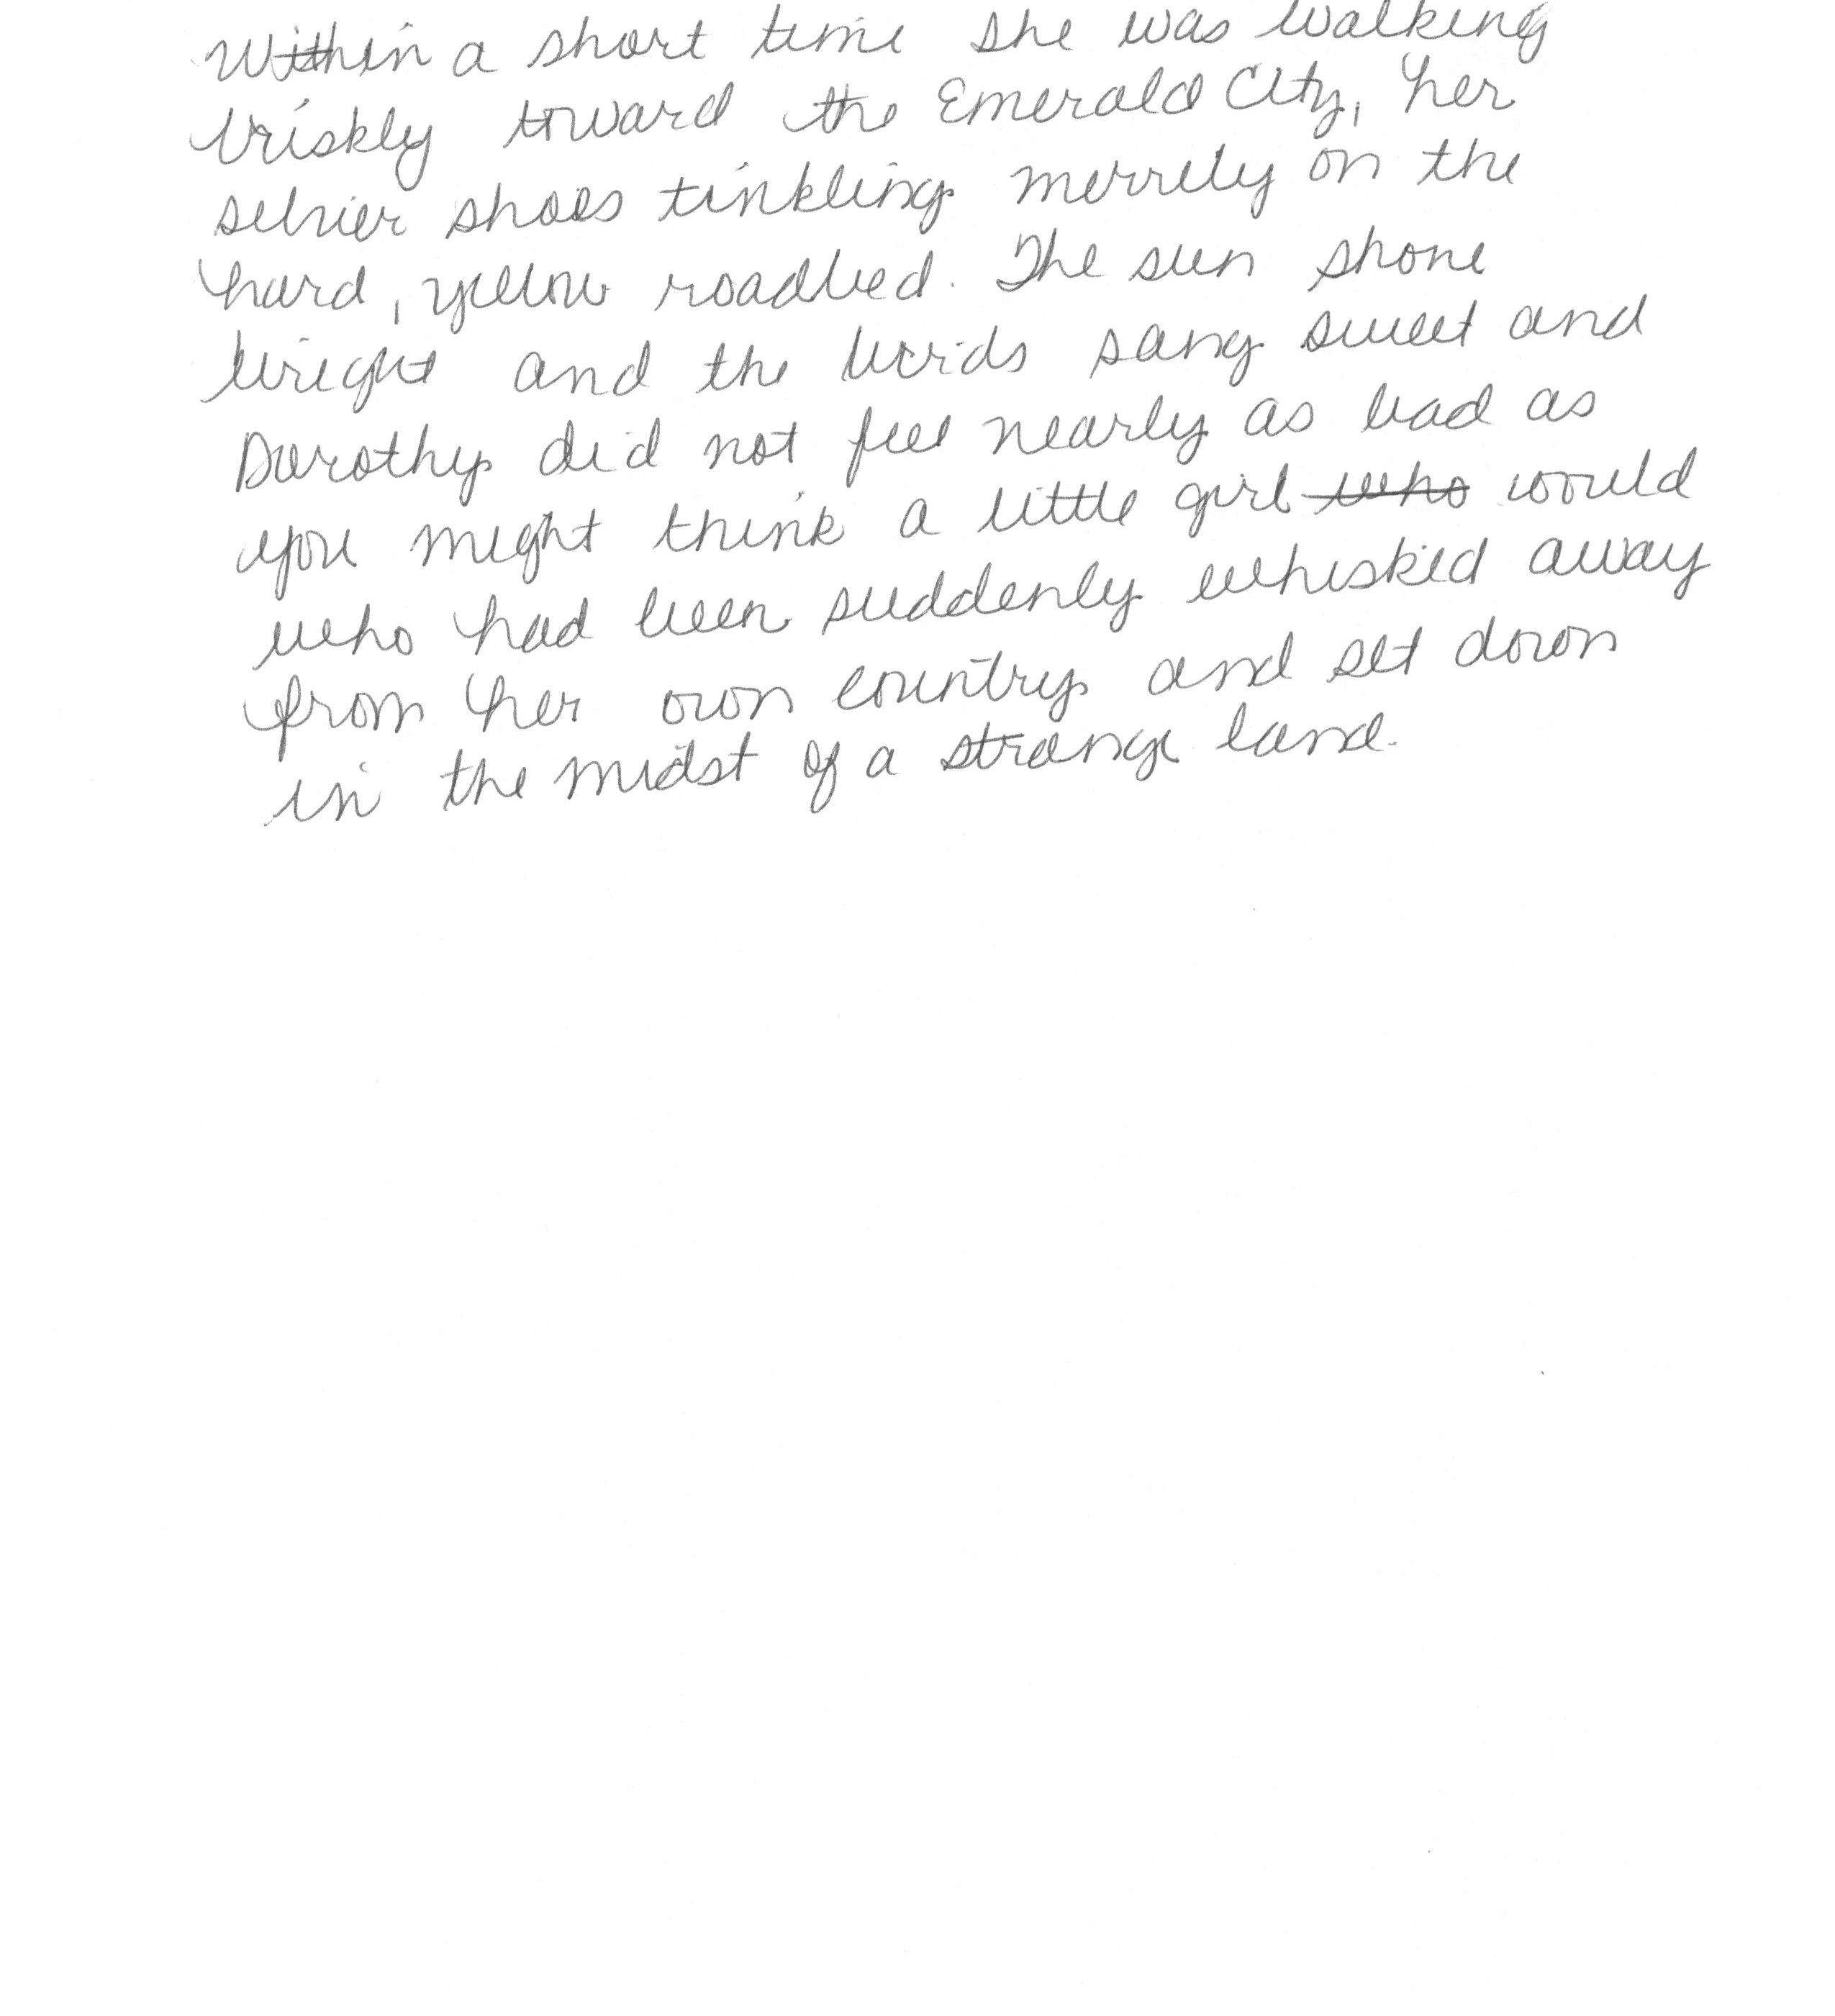 Within a short time she was walking
briskly toward the Emerald City, her
silver shoes tinkling merrily on the
hard, yellow roadbed. The sun shone
bright and the birds sang sweet and
Dorothy did not feel nearly as bad as
you might think a little girl who would
who had been suddenly whisked away
from her own country and set down
in the midst of a strange land.